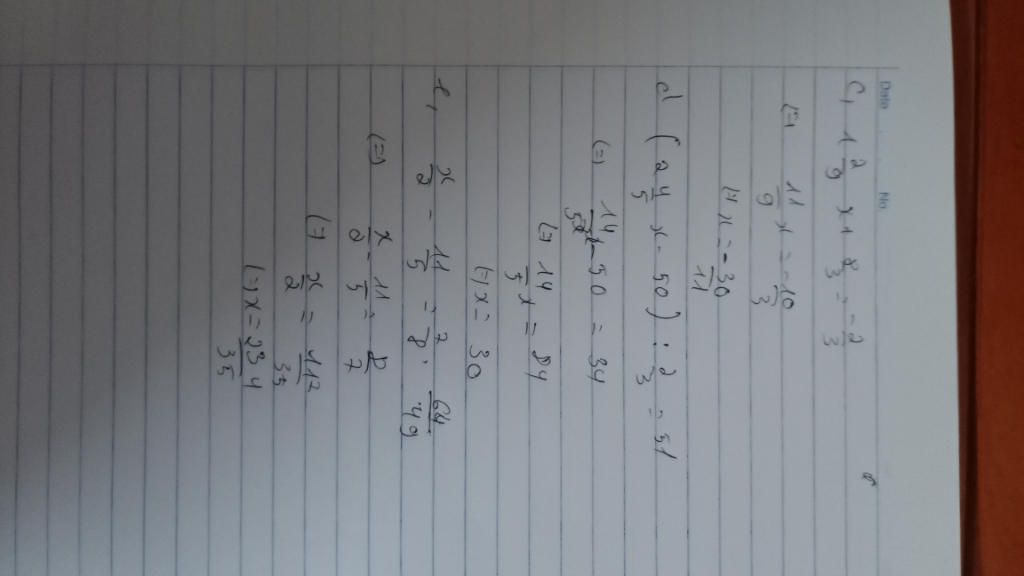 Date No.
c, 1 2/9 x + 8/3 = -2/3
(=) 11/9 x = -10/3
(=) x = -30/11
d (2 4/5 x - 50) : 2/3 = 51
(=) 14/5 x - 50 = 34
(=) 14/5 x = 84
(=) x = 30
e, x/2 - 11/5 = 7/8 . 64/49
(=) x/2 - 11/5 = 8/7
(=) x/2 = 117/35
(=) x = 234/35